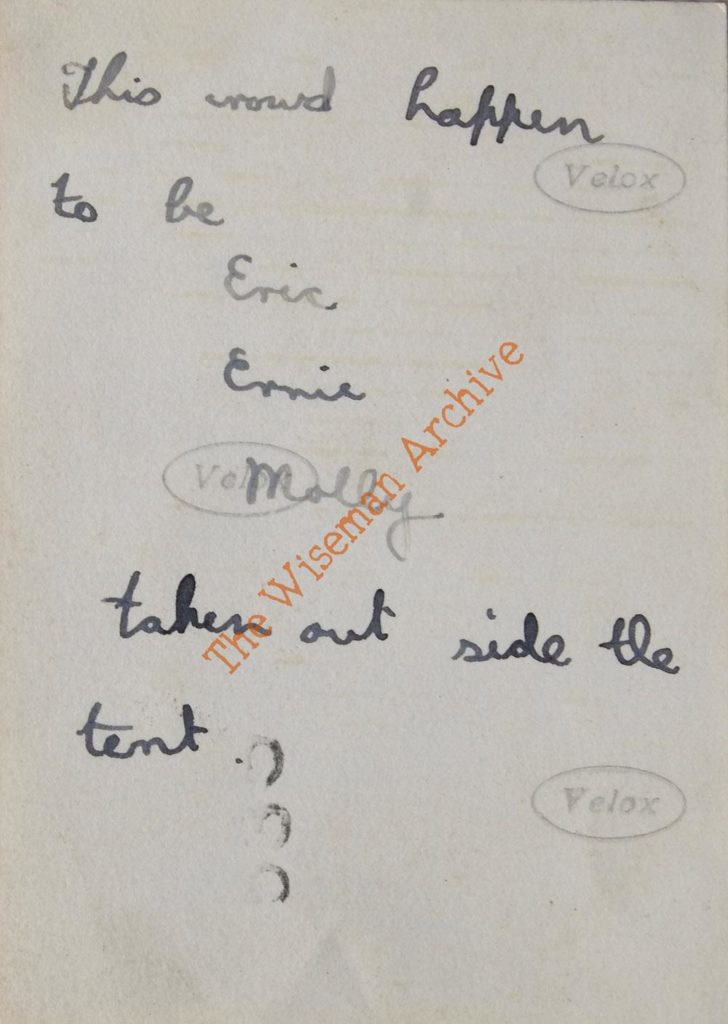 This crowd happen
Velox
to be
Eric
Ernie
Velox
Molly
taken out side the
tent.
Velox
The Wiseman Archive